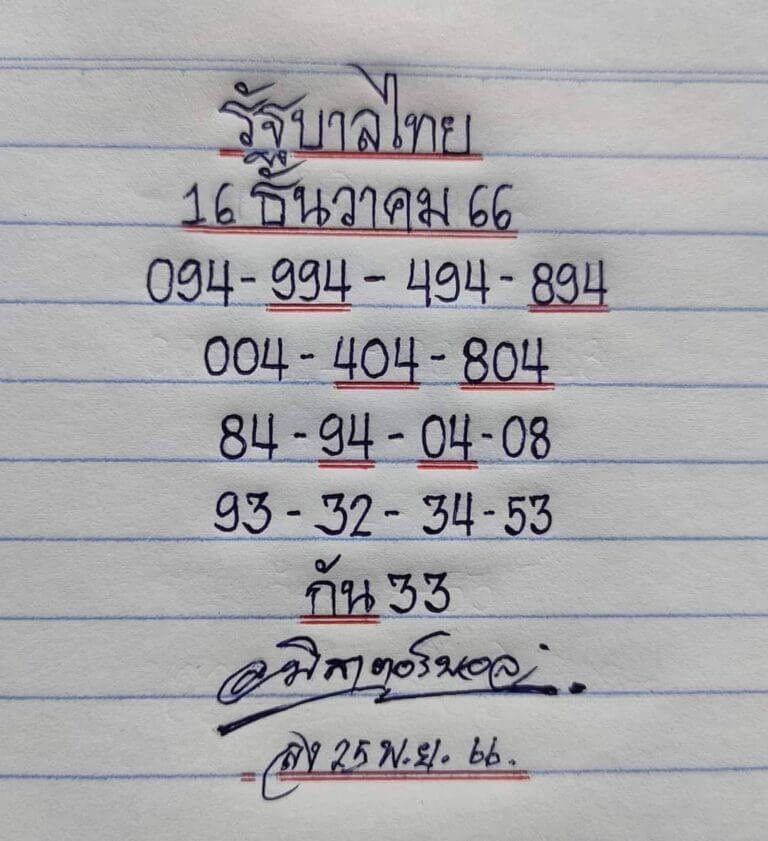 รัฐบาลไทย
16 ธันวาคม 66
094-994-494-894
004-404-804
84-94-04-08
93-32-34-53
กัน 33
ลง 25 พ.ย. 66.